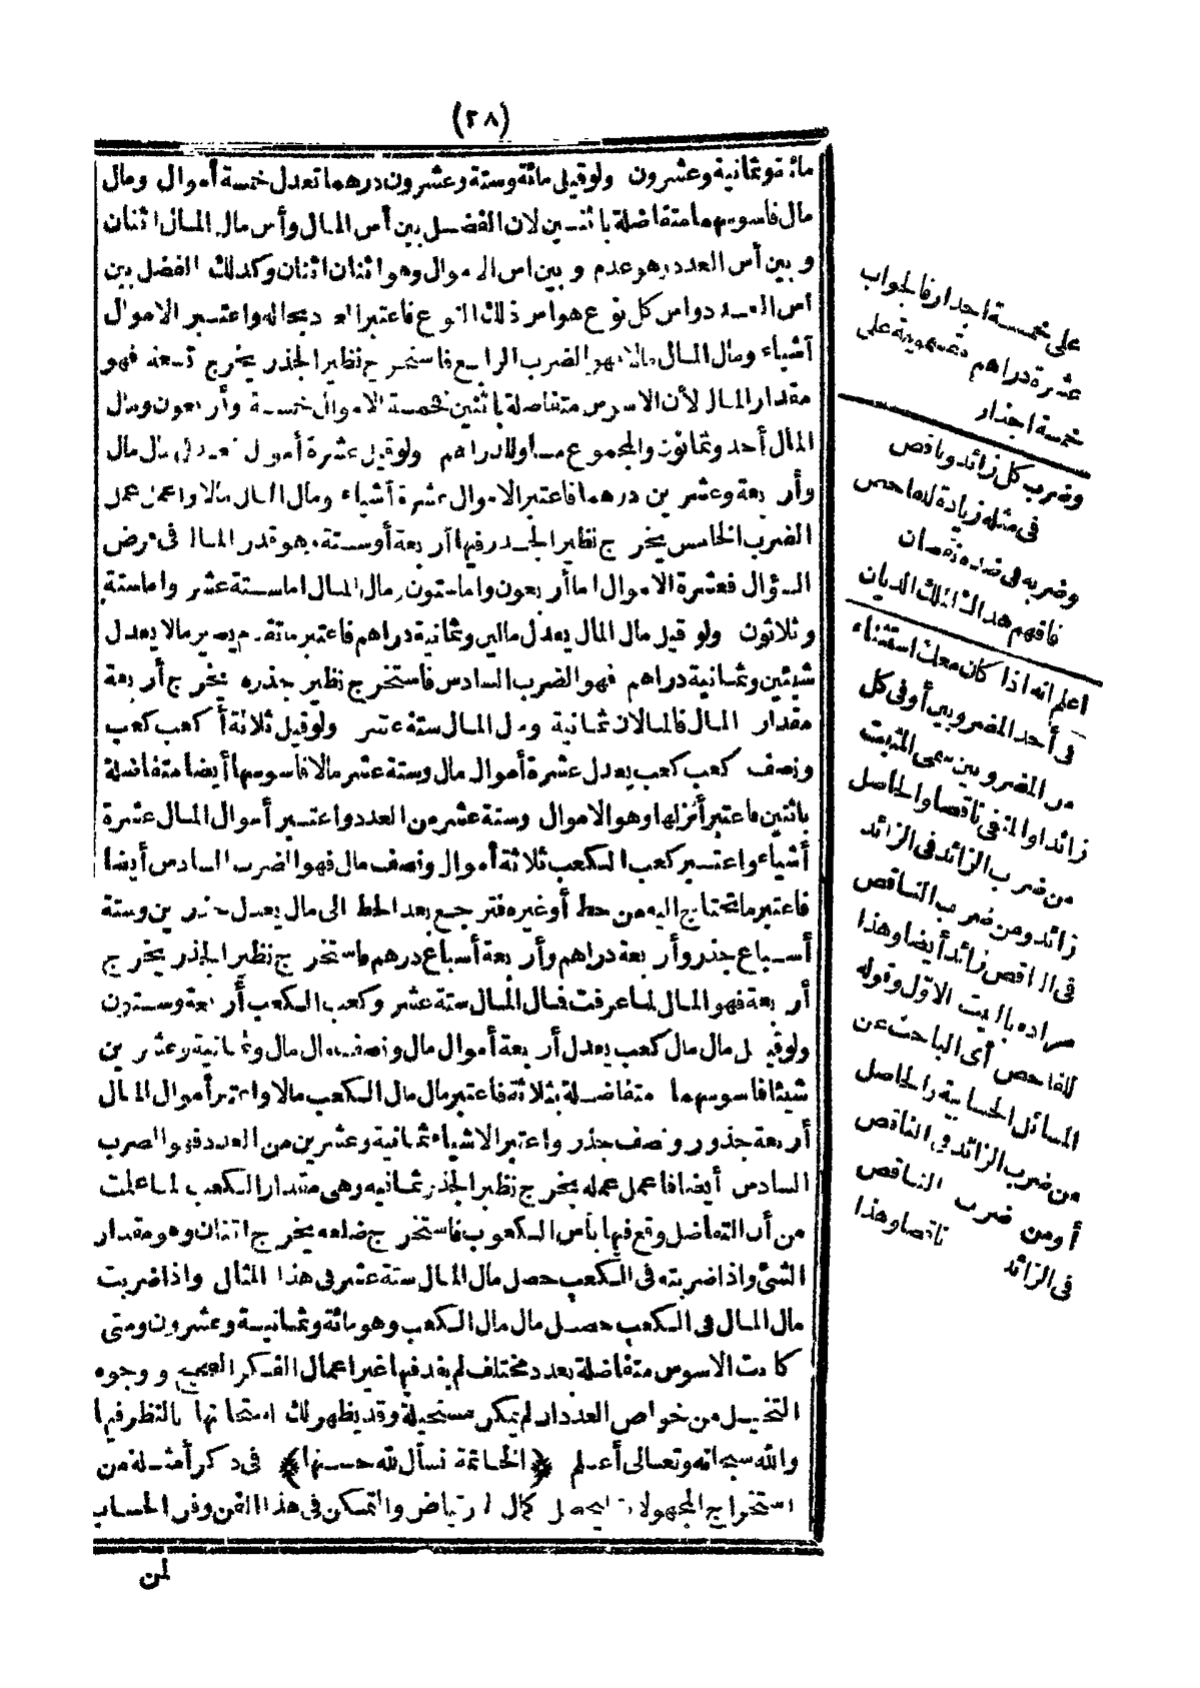 (٢٨)
مائة وثمانية وعشرون ولو قيل مائة وستة وعشرون درهما تعدل خمسة أموال ومال
مال فاسوسهما متفاضلة باثنين لان الفضل بين أس المال وأس مال المال اثنان
وبين أس العدد وهو عدم وبين اس الاموال وهو اثنان اثنان وكذلك الفضل بين
اس العدد واس كل نوع هو اس ذلك النوع فاعتبر العدد بحاله واعتبر الاموال
أشياء ومال المال مالا فهو الضرب الرابع فاستخرج نظير الجذر يخرج تسعة فهو
مقدار المال لأن الاسوس متفاضلة باثنين فخمسة الاموال خمسة وأربعون ومال
المال أحد وثمانون والمجموع مساو للدراهم ولو قيل عشرة أموال تعدل مال مال
وأربعة وعشرين درهما فاعتبر الاموال عشرة أشياء ومال المال مالا واعمل عمل
الضرب الخامس يخرج نظير الجذر فيها أربعة أو ستة وهو قدر المال فى فرض
السؤال فعشرة الاموال اما أربعون واما ستون ومال المال اما ستة عشر واما ستة
وثلاثون ولو قيل مال المال يعدل مالين وثمانية دراهم فاعتبر ما تقدم يصير مالا يعدل
شيئين وثمانية دراهم فهو الضرب السادس فاستخرج نظير جذره يخرج أربعة
مقدار المال فالمالان ثمانية ومال المال ستة عشر ولو قيل ثلاثة أكعب كعب
ونصف كعب كعب يعدل عشرة أموال مال وستة عشر مالا فاسوسها أيضا متفاضلة
باثنين فاعتبر أنزلها وهو الاموال وستة عشر من العدد واعتبر أموال المال عشرة
أشياء واعتبر كعب الكعب ثلاثة أموال ونصف مال فهو الضرب السادس أيضا
فاعتبر ما تحتاج اليه من حط أو غيره فترجع بعد الحط الى مال يعدل جذرين وستة
أسباع جذر وأربعة دراهم وأربعة أسباع درهم فاستخرج نظير الجذر يخرج
أربعة فهو المال لما عرفت فمال المال ستة عشر وكعب الكعب أربعة وستون
ولو قيل مال مال كعب يعدل أربعة أموال مال ونصف مال مال وثمانية وعشرين
شيئا فاسوسهما متفاضلة بثلاثة فاعتبر مال مال الكعب مالا واعتبر أموال المال
أربعة جذور ونصف جذر واعتبر الاشياء ثمانية وعشرين من العدد فهو الضرب
السادس أيضا فاعمل عمله يخرج نظير الجذر ثمانيه وهى مقدار الكعب لما علمت
من أن التفاضل وقع فيها بأس الكعوب فاستخرج ضلعه يخرج اثنان وهو مقدار
الشئ واذا ضربته فى الكعب حصل مال المال ستة عشر فى هذا المثال واذا ضربت
مال المال فى الكعب حصل مال مال الكعب وهو مائة وثمانية وعشرون ومتى
كانت الاسوس متفاضلة بعدد مختلف لم يفد فيها غير اعمال الفكر الصحيح ووجوه
التخيل من خواص العدد ان لم تكن مستحيلة وقد يظهر لك استحالتها بالنظر فيها
والله سبحانه وتعالى أعلم ﴿الخاتمة نسأل الله حسنها﴾ فى ذكر أمثلة من
استخراج المجهولات ليحصل كمال الارتياض والتمكن فى هذا الفن وفن الحساب
لمن
على خمسة اجذار فالجواب
عشرة دراهم مقسومة على
خمسة اجذار
وضرب كل زائد وناقص
فى مثله زيادة للفاحص
وضربه فى ضده نقصان
فافهم هداك الملك الديان
اعلم انه اذا كان معك استثناء
فى أحد المضروبين أو فى كل
من المضروبين يسمى المثبت
زائدا والمنفى ناقصا والحاصل
من ضرب الزائد فى الزائد
زائد ومن ضرب الناقص
فى الناقص زائد أيضا وهذا
مراده بالبيت الاول وقوله
للفاحص أى الباحث عن
المسائل الحسابية والحاصل
من ضرب الزائد فى الناقص
أو من ضرب الناقص
فى الزائد ناقصا وهذا